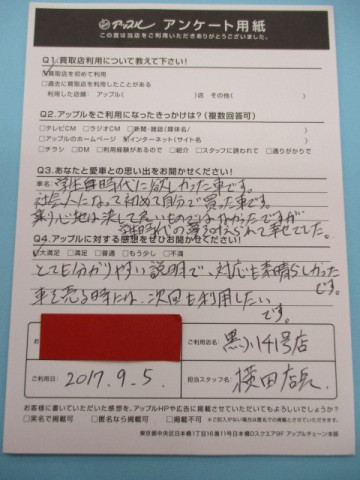 アップル アンケート用紙
この度は当店をご利用いただきありがとうございました。
Q1.買取店利用について教えて下さい!
☑買取店を初めて利用
□過去に買取店を利用したことがある
利用した店舗: アップル( )店 その他( )
Q2.アップルをご利用になったきっかけは?(複数回答可)
□テレビCM □ラジオCM □新聞・雑誌(媒体名 )
□アップルのホームページ ☑インターネット(サイト名 )
□チラシ □DM □利用経験があるので □紹介 □スタッフに誘われて □通りがかりで
Q3.あなたと愛車との思い出をお聞かせください!
車名 学生時代に欲しかった車です。
社会人になって初めて自分で買った車です。
乗り心地は決して良いものではなかったですが
学生時代の夢を叶えられて幸せでした。
Q4.アップルに対する感想をぜひお聞かせください!
☑大満足 □満足 □普通 □もう少し □不満
とても分かりやすい説明で、対応も素晴らしかった
です。
車を売る時には、次回も利用したい
です。
お
ご利用店名: 黒川41号店
ご利用日: 2017.9.5.
担当スタッフ名: 横田店長
お客様に書いていただいた感想を、アップルHPや広告に掲載させていただいてもよろしいでしょうか?
□実名で掲載可 □匿名なら掲載可 □掲載不可
東京都中央区日本橋1丁目16番11号日本橋Dスクエア9F アップルチェーン本部